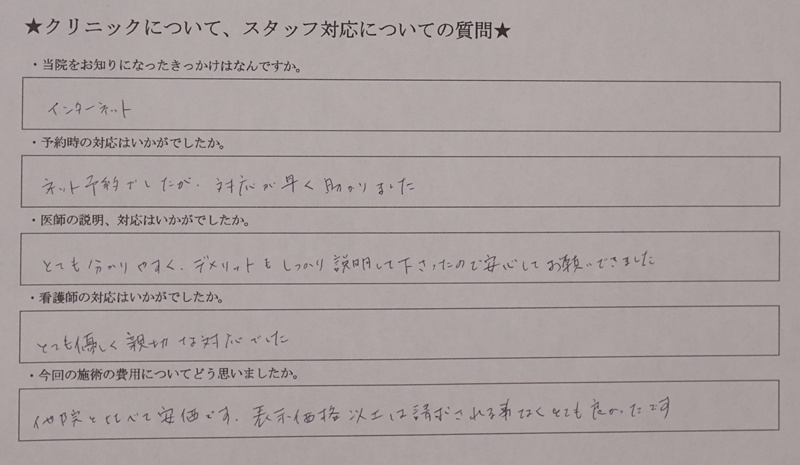 ★クリニックについて、スタッフ対応についての質問★
・当院をお知りになったきっかけはなんですか。
インターネット
・予約時の対応はいかがでしたか。
ネット予約でしたが、対応が早く助かりました
・医師の説明、対応はいかがでしたか。
とても分かりやすく、デメリットもしっかり説明して下さったので安心してお願いできました
・看護師の対応はいかがでしたか。
とても優しく親切な対応でした
・今回の施術の費用についてどう思いましたか。
他院と比べて安価です。表示価格以上は請求される事なくとても良かったです